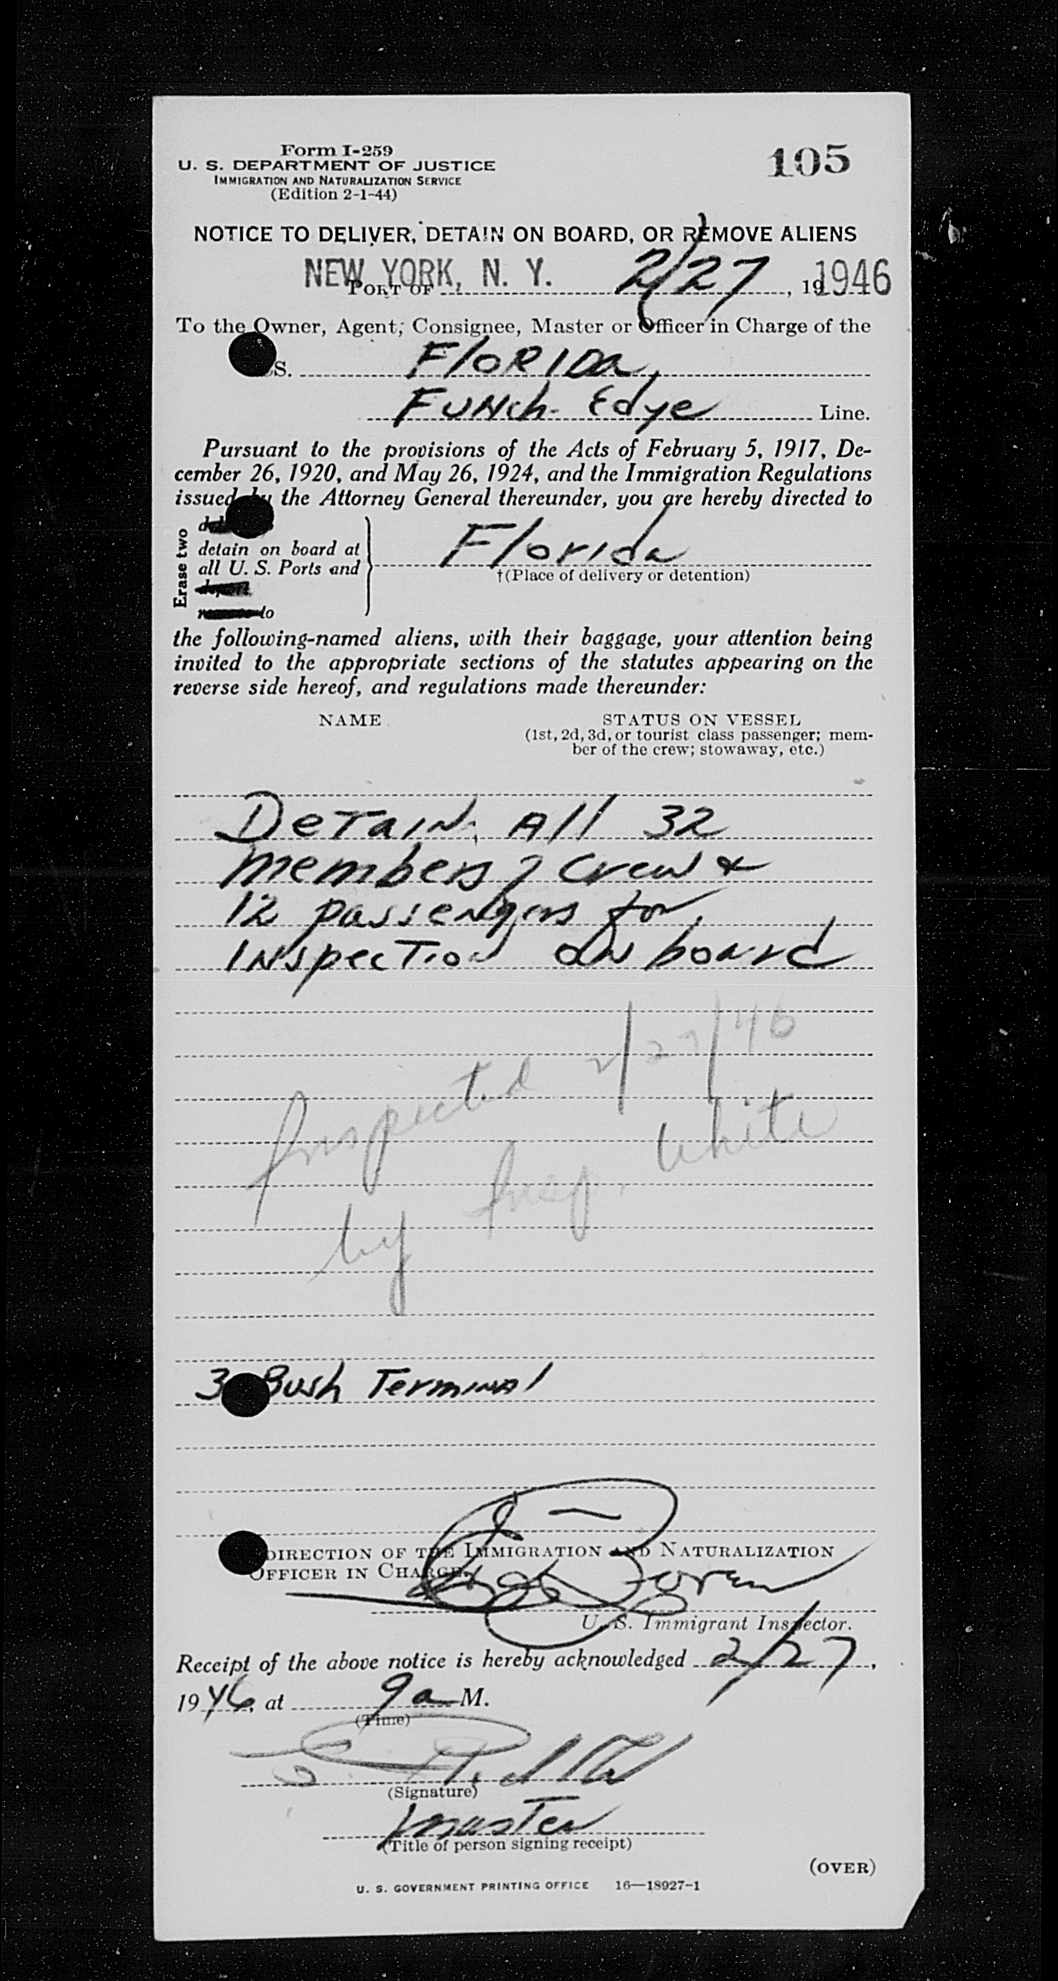 Form I-259
105
U. S. DEPARTMENT OF JUSTICE
IMMIGRATION AND NATURALIZATION SERVICE
(Edition 2-1-44)
NOTICE TO DELIVER, DETAIN ON BOARD, OR REMOVE ALIENS
NEW YORK, N. Y. 2/27 1946
PORT OF , 19
To the Owner, Agent, Consignee, Master or Officer in Charge of the
S. FLORIDA,
Funch-Edye Line.
Pursuant to the provisions of the Acts of February 5, 1917, De-
cember 26, 1920, and May 26, 1924, and the Immigration Regulations
issued by the Attorney General thereunder, you are hereby directed to
Erase two
detain on board at
all U. S. Ports and
Florida
†(Place of delivery or detention)
to
the following-named aliens, with their baggage, your attention being
invited to the appropriate sections of the statutes appearing on the
reverse side hereof, and regulations made thereunder:
NAME STATUS ON VESSEL
(1st, 2d, 3d, or tourist class passenger; mem-
ber of the crew; stowaway, etc.)
Detain All 32
members of crew &
12 passengers for
Inspection on board
Inspected 2/27/46
by Insp. White
3 Bush Terminal
DIRECTION OF THE IMMIGRATION AND NATURALIZATION
OFFICER IN CHARGE
U. S. Immigrant Inspector.
Receipt of the above notice is hereby acknowledged 2/27,
1946, at 9 a M.
(Time)
(Signature)
master
(Title of person signing receipt)
(OVER)
U. S. GOVERNMENT PRINTING OFFICE 16—18927-1